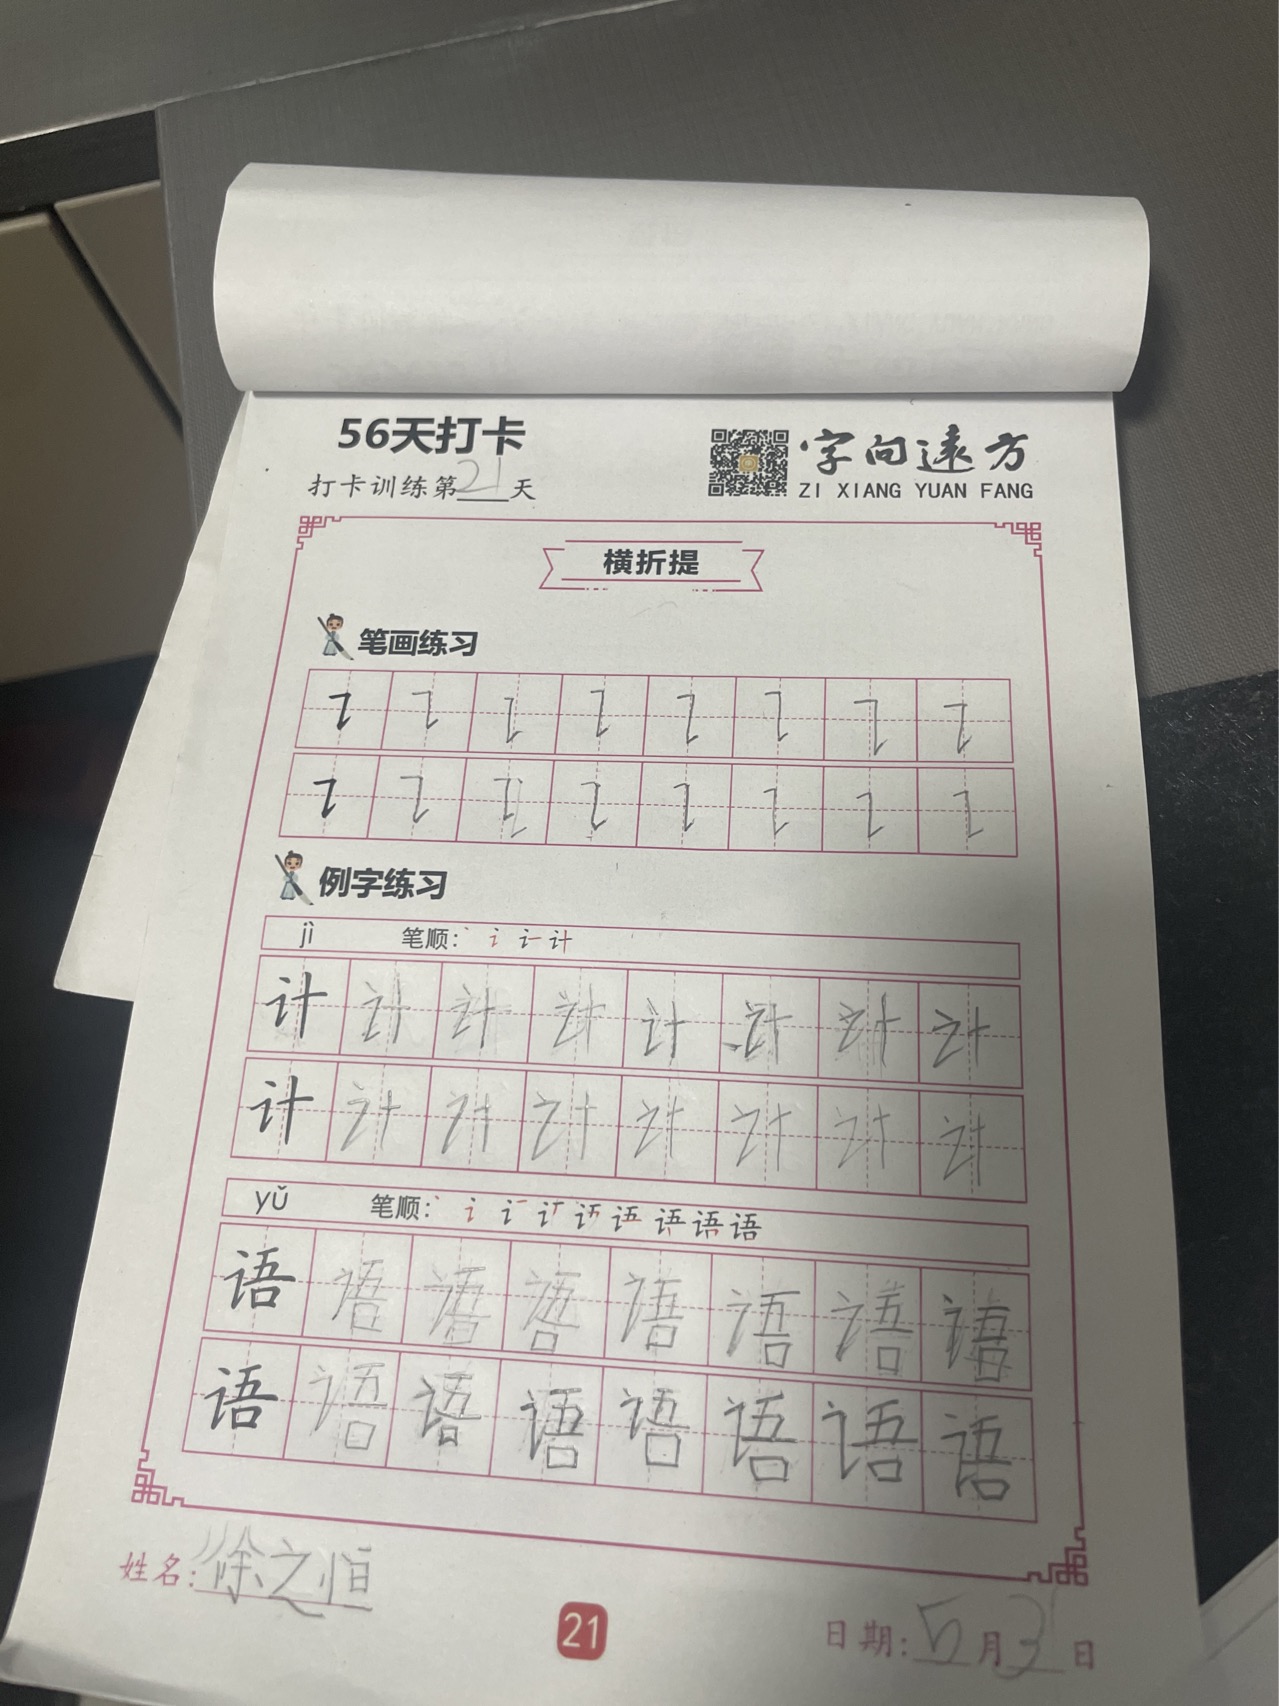 56天打卡
打卡训练第21天
字向远方
ZI XIANG YUAN FANG
横折提
笔画练习
例字练习
jì 笔顺:
计 计 计 计 计 计 计 计
计 计 计 计 计 计 计 计
yǔ 笔顺: 语
语 语 语 语 语 语 语 语
语 语 语 语 语 语 语 语
姓名:徐之恒
21
日期:5月31日